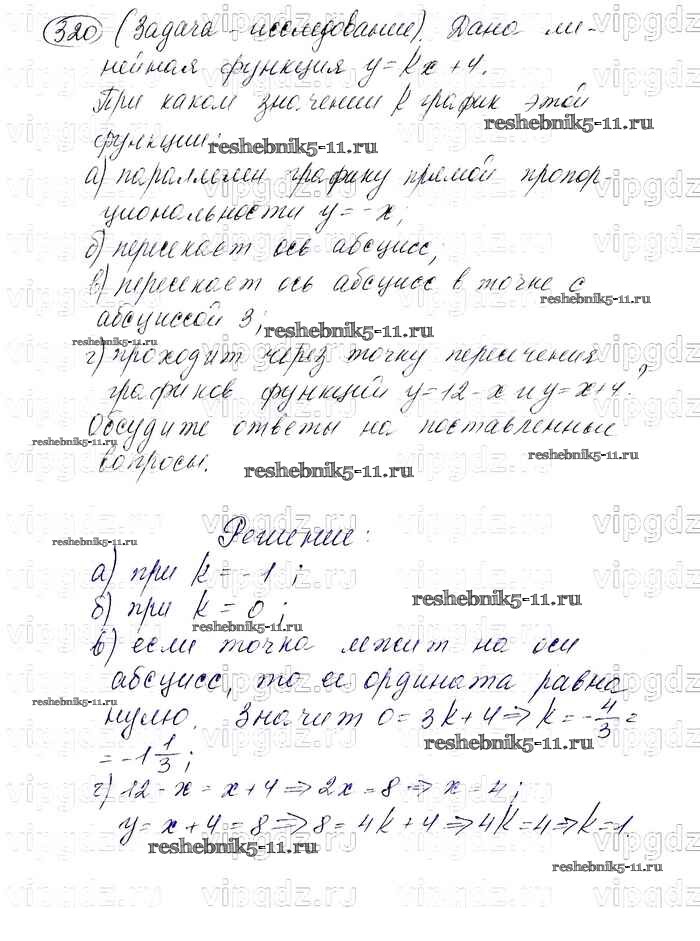 320 (Задача - исследование). Дана ли-
нейная функция y = kx + 4.
При каком значении k график этой
функции:
а) параллелен графику прямой пропор-
циональности y = -x;
б) пересекает ось абсцисс;
в) пересекает ось абсцисс в точке с
абсциссой 3;
г) проходит через точку пересечения
графиков функций y = 12 - x и y = x + 4.
Обсудите ответы на поставленные
вопросы.
Решение:
а) при k = -1;
б) при k = 0;
в) если точка лежит на оси
абсцисс, то ее ордината равна
нулю. Значит 0 = 3k + 4 ⇒ k = -4/3 =
= -1 1/3;
г) 12 - x = x + 4 ⇒ 2x = 8 ⇒ x = 4;
y = x + 4 = 8 ⇒ 8 = 4k + 4 ⇒ 4k = 4 ⇒ k = 1.
reshebnik5-11.ru
vipgdz.ru